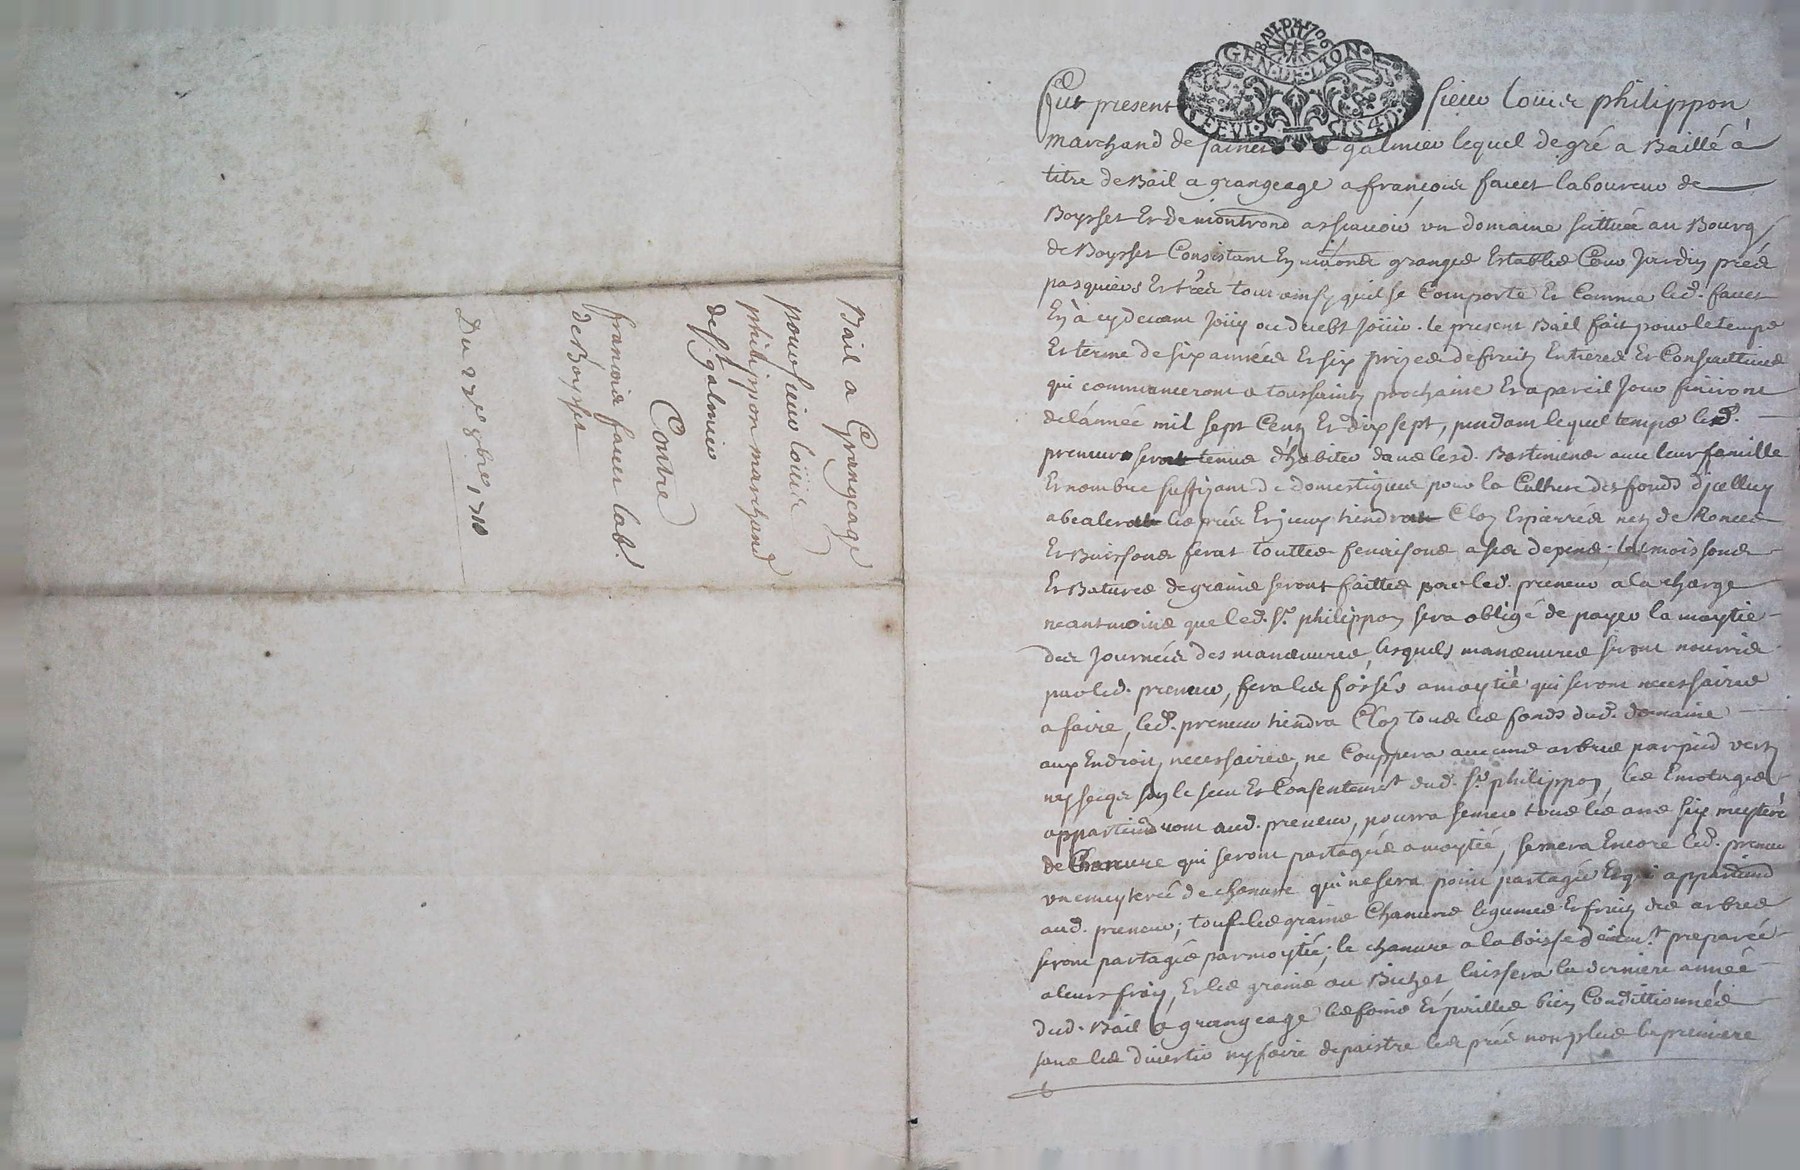 Bail a Grangeage
pour sieur Loüis
philippon marchand
de st galmier
Contre
francois fauet lab.r
de Boysset
Du 27e 8bre 1710
BAIL DE 1706
GEN. DE LION
Fut present sieur Loüis philippon
marchand de sainct galmier lequel de gré a Baillé à
titre de Bail a grangeage a françois fauet laboureur de
Boysset Et de montrond assauoir un domaine scittuée au Bourg
de Boysset Consistant En maisons granges Estables Cour Jardin prés
pasquiers Et tout ainsy quil se Comporte Et Comme led. fauet
En à cy deuant Joüy ou deubt Joüir. le present Bail fait pour le temps
Et terme de six années Et six prizes de fruits Entieres Et Consecutiues
qui commanceront a toussaints prochaine Et a pareil Jour finiront
de lannée mil sept Cents Et dix sept, pendant lequel temps led.
preneur sera tenus dhabiter dans lesd. Bastimens auec leur famille
Et nombre suffizant de domestiques pour la Culture des fonds dicelluy
les prés Et tiendra Clos Et nets de Ronces
Et Buissons feras touttes fenaisons a ses depens; les moissons
Et Batures de grains seront faittes par led. preneur a la charge
neantmoins que led. sr. philippon sera obligé de payer la moytie
des Journées des manœuures, lesquels manœuures seront nourris
par led. preneur, fera les fossés a moytié qui seront necessaires
a faire, led. preneur tiendra Clos tous les fonds dud. domaine
aux Endroits necessaires, ne Couppera aucuns arbres par pied verts
ny secqs sans le sceu Et Consentemt dud. sr. philippon, les Emotages
appartiendront aud. preneur, pourra semer tous les ans six
de Chanure qui seront partagés a moytié, semera Encore led. preneur
une de chanure qui ne sera point partagée Et qui appartiend
aud. preneur; tous les grains Chanures legumes Et fruits des arbres
seront partagés par moytié; le chanure a la preparée
a leurs frais, Et les grains au Bichet, laissera la derniere année
dud. Bail a grangeage les foins Et pailles bien Condittionnées
sans les diuertir ny faire depaistre les prés non plus la premiere